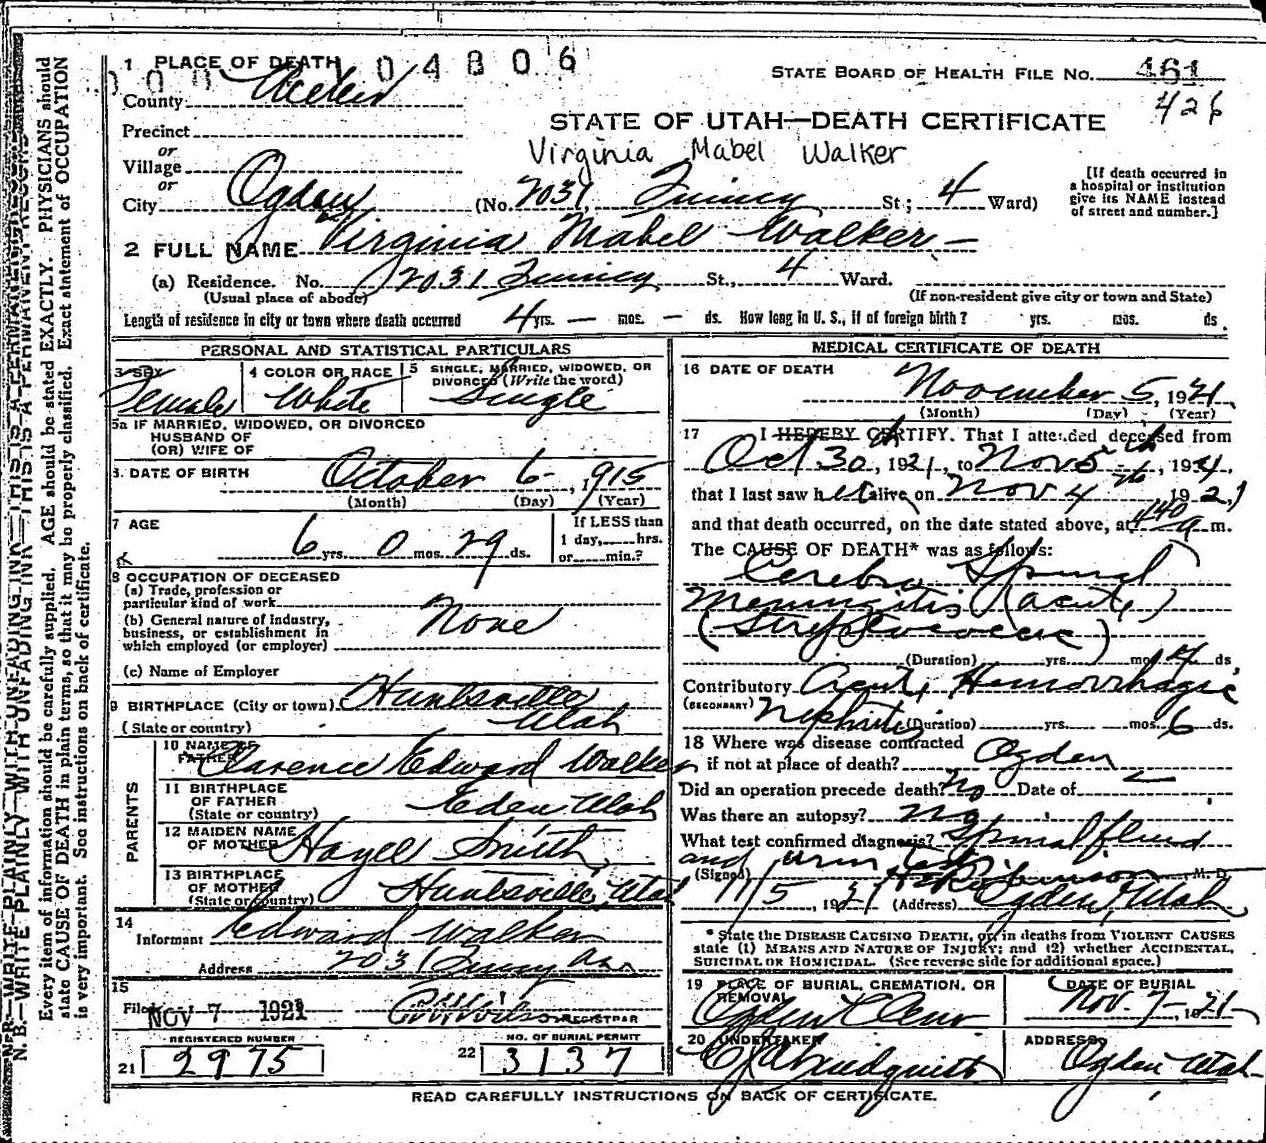 1 PLACE OF DEATH 04806
STATE BOARD OF HEALTH FILE No. 461
426
County Weber
STATE OF UTAH—DEATH CERTIFICATE
Precinct
or
Virginia Mabel Walker
Village
or
[If death occurred in
a hospital or institution
give its NAME instead
of street and number.]
City Ogden (No. 2031 Quincy St; 4 Ward)
2 FULL NAME Virginia Mabel Walker
(a) Residence. No. 2031 Quincy St., 4 Ward.
(Usual place of abode) (If non-resident give city or town and State)
Length of residence in city or town where death occurred 4 yrs. — mos. — ds. How long in U. S., if of foreign birth? yrs. mos. ds.
PERSONAL AND STATISTICAL PARTICULARS
3 SEX Female
4 COLOR OR RACE White
5 SINGLE, MARRIED, WIDOWED, OR
DIVORCED (Write the word) Single
5a IF MARRIED, WIDOWED, OR DIVORCED
HUSBAND OF
(OR) WIFE OF
6. DATE OF BIRTH October 6, 1915
(Month) (Day) (Year)
7 AGE 6 yrs. 0 mos. 29 ds.
If LESS than
1 day, hrs.
or min.?
8 OCCUPATION OF DECEASED
(a) Trade, profession or
particular kind of work
(b) General nature of industry,
business, or establishment in
which employed (or employer) None
(c) Name of Employer
9 BIRTHPLACE (City or town) Huntsville
(State or country) Utah
PARENTS
10 NAME OF
FATHER Clarence Edward Walker
11 BIRTHPLACE
OF FATHER
(State or country) Eden Utah
12 MAIDEN NAME
OF MOTHER Hazel Smith
13 BIRTHPLACE
OF MOTHER
(State or country) Huntsville, Utah
14
Informant Edward Walker
Address 2031 Quincy Ave
15
Filed NOV 7 1921 Wilson REGISTRAR
REGISTERED NUMBER
21 2975
NO. OF BURIAL PERMIT
22 3137
MEDICAL CERTIFICATE OF DEATH
16 DATE OF DEATH
November 5, 1921
(Month) (Day) (Year)
17 I HEREBY CERTIFY. That I attended deceased from
Oct 30th, 1921, to Nov 5th, 1921,
that I last saw her alive on Nov 4th 1921
and that death occurred, on the date stated above, at 440 a m.
The CAUSE OF DEATH* was as follows:
Cerebro Spinal
Meningitis (acute)
(Streptococcic)
(Duration) yrs. mos. 4 ds.
Contributory Acute Hemorrhagic
(SECONDARY) Nephritis (Duration) yrs. mos. 6 ds.
18 Where was disease contracted
if not at place of death? Ogden
Did an operation precede death? No Date of —
Was there an autopsy? No
What test confirmed diagnosis? Spinal fluid
and urin tests.
(Signed) M. D.
11/5, 1921 (Address) Ogden, Utah
* State the DISEASE CAUSING DEATH, or in deaths from VIOLENT CAUSES
state (1) MEANS AND NATURE OF INJURY; and (2) whether ACCIDENTAL,
SUICIDAL OR HOMICIDAL. (See reverse side for additional space.)
19 PLACE OF BURIAL, CREMATION, OR
REMOVAL
Ogden Cem
DATE OF BURIAL
Nov. 7 1921
20 UNDERTAKER
Lindquist
ADDRESS
Ogden Utah
READ CAREFULLY INSTRUCTIONS ON BACK OF CERTIFICATE.
N. B.—WRITE PLAINLY WITH UNFADING INK—THIS IS A PERMANENT RECORD
Every item of information should be carefully supplied. AGE should be stated EXACTLY. PHYSICIANS should
state CAUSE OF DEATH in plain terms, so that it may be properly classified. Exact statement of OCCUPATION
is very important. See instructions on back of certificate.